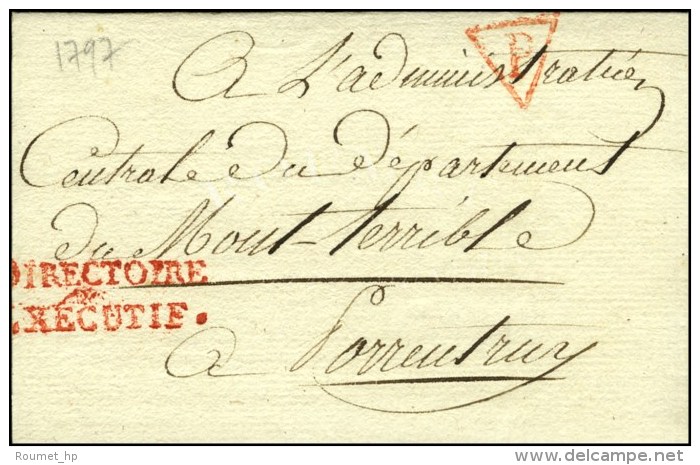 1797
P
A L'administration
Centrale du département
du Mont-terrible
DIRECTOIRE
EXÉCUTIF.
a Porrentruy
© Roumet_hp
delcampe.net